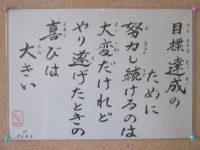 目標達成の
ために
努力し続けるのは
大変だけれど
やり遂げたときの
喜びは
大きい